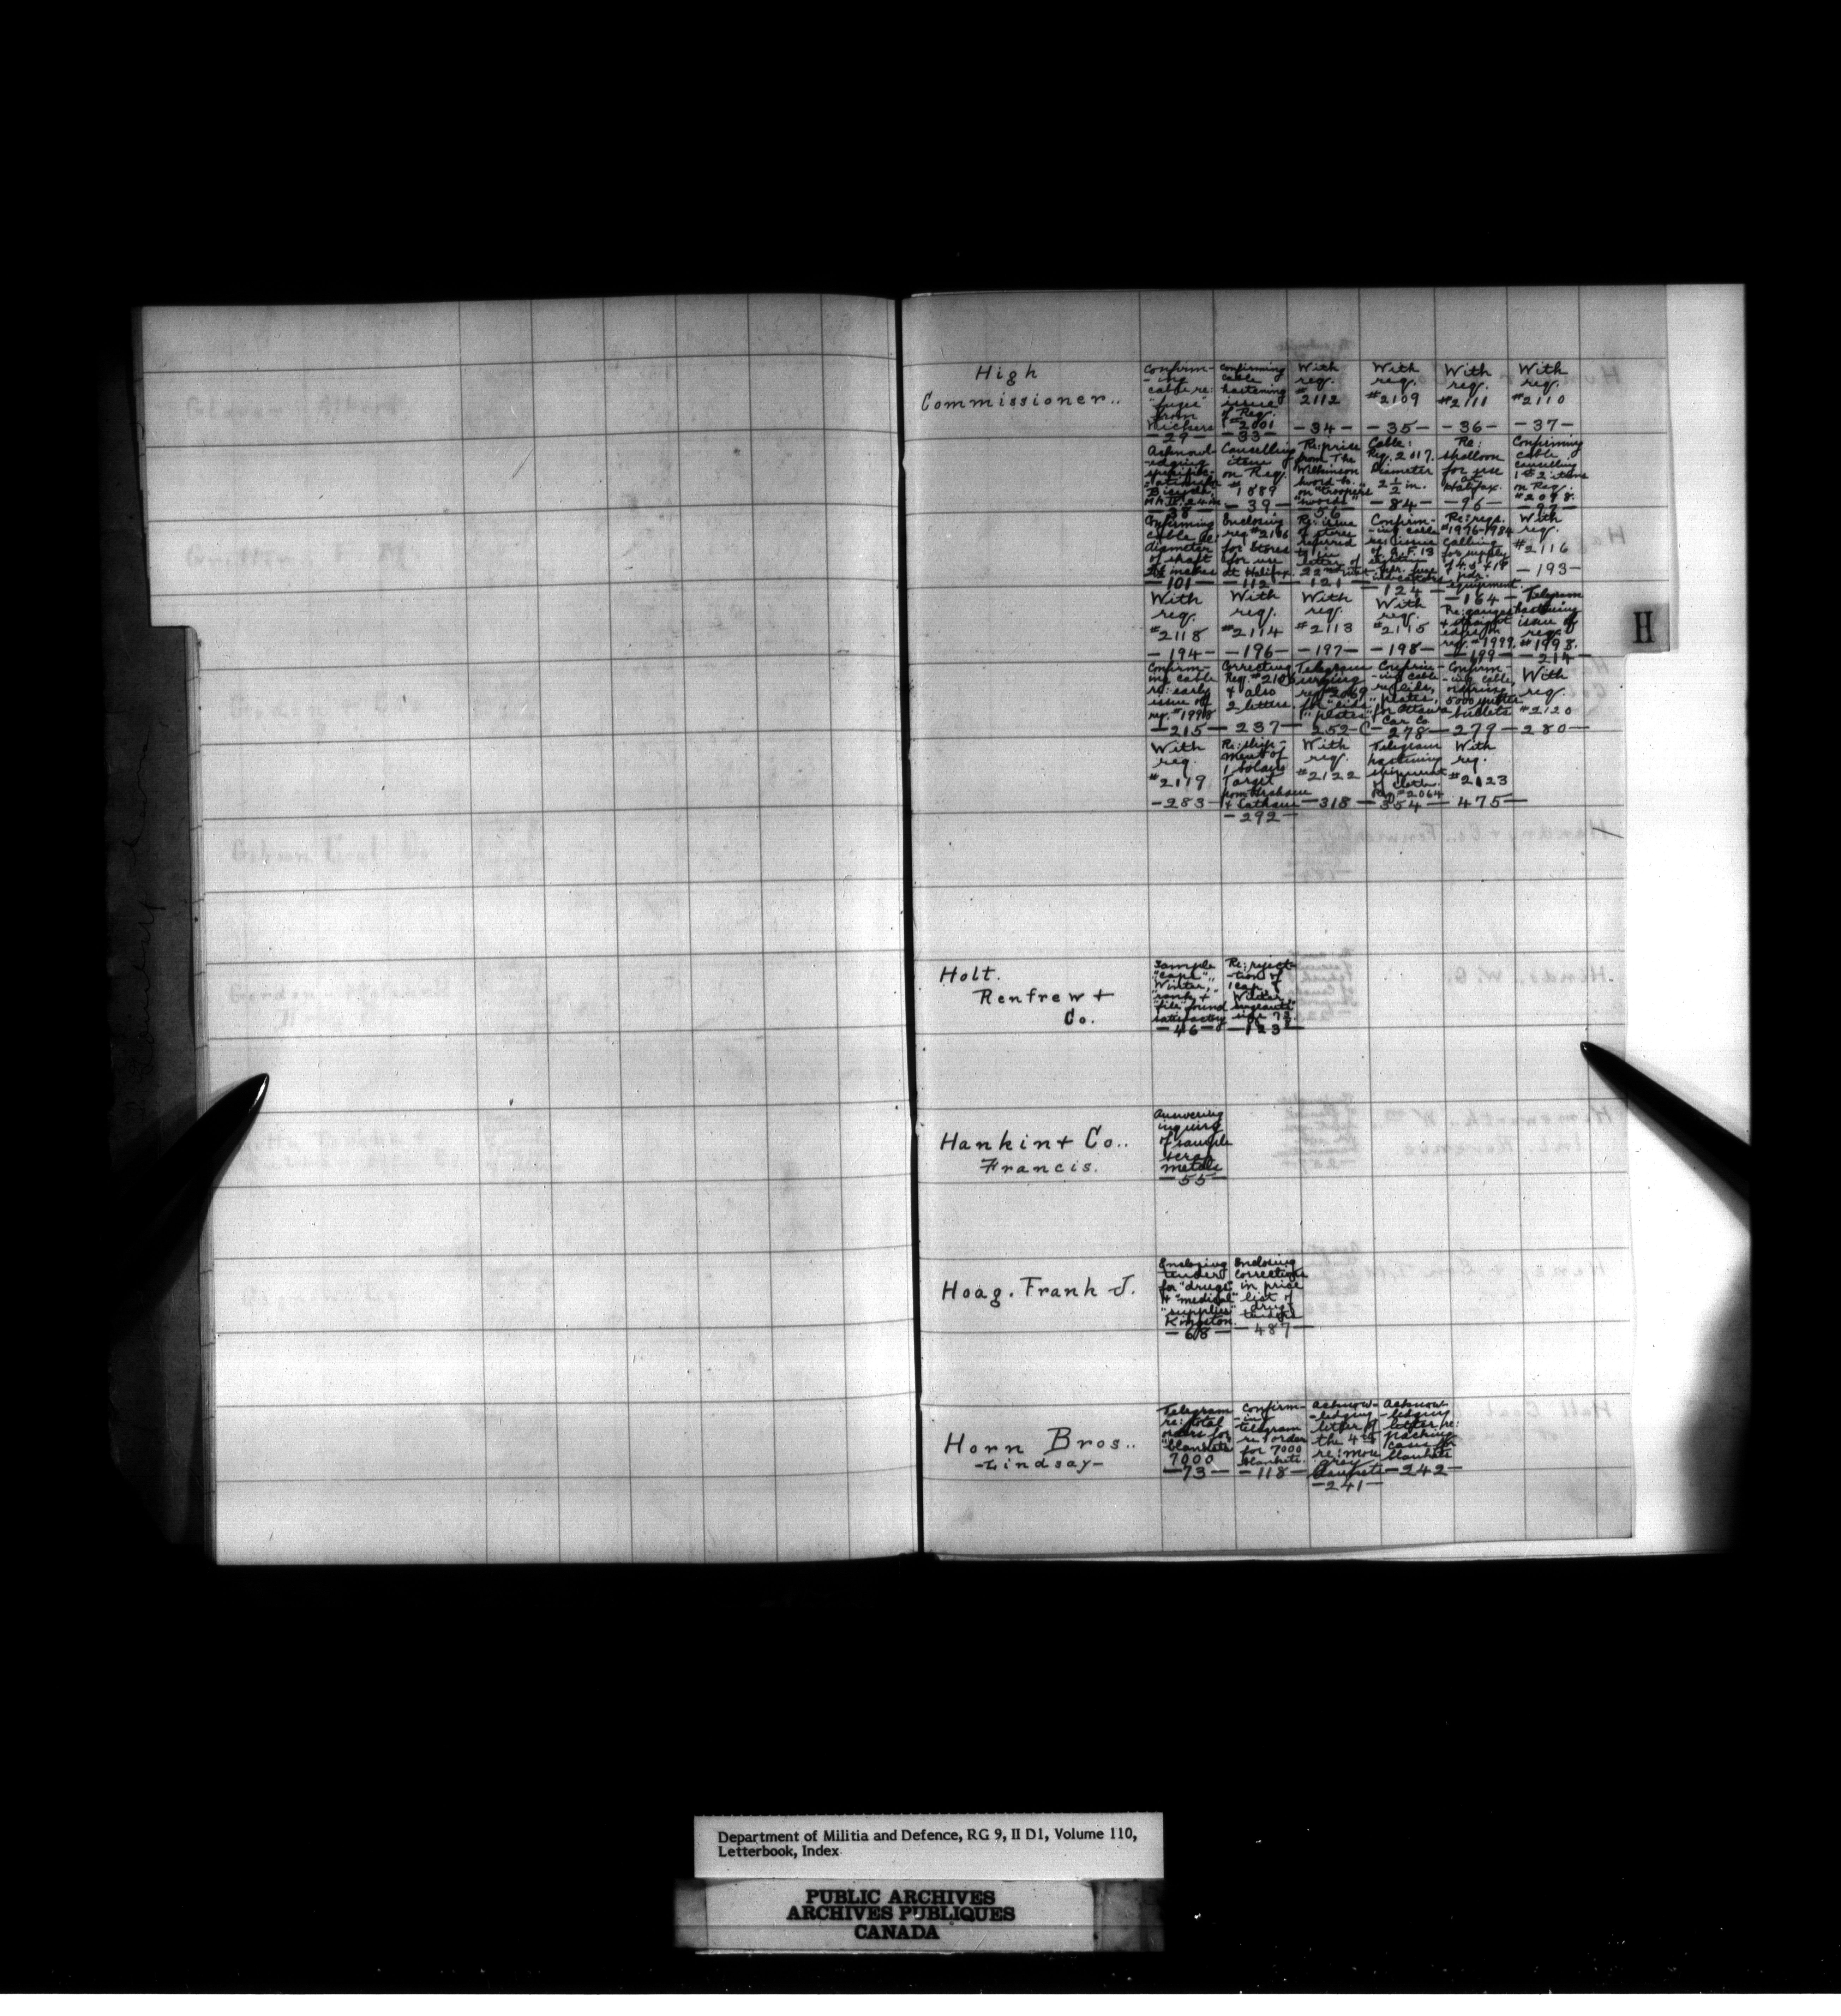 High
Commissioner..
Confirm-
-ing
cable re:
"fuzes"
from
Vickers
-29-
Confirming
cable
hastening
issue
of Req.
#2001
-33-
With
req.
#
2112
-34-
With
req.
#2109
-35-
With
req.
#2111
-36-
With
req.
#2110
-37-
Acknowl-
-edging
-38-
Cancelling
item
on Req.
#
1889
-39-
Re: price
from The
Wilkinson
Sword Co.
on "troopers
"swords"
56
Cable:
Req. 2017.
Diameter
2 1/2 in.
-84-
Re:
shalloon
for use
at
Halifax.
-96-
Confirming
cable
cancelling
1st & 2 items
on Req.
#2098.
-97-
Confirming
cable re
diameter
of shaft
2 1/2 inches
-101-
Enclosing
req #2106
for Stores
for use
at Halifax.
-112-
Re: issue
of stores
referred
to in
letter of
22nd inst.
-121-
Confirm-
-ing cable
re: issue
of Q.F. 13
pdr. fuze
indicators
-124-
Re: reqs.
#1976-1984
calling
for supply
of 4.5" & 18
pdr.
equipment.
-164-
With
req.
#2116
-193-
With
req.
#2118
-194-
With
req.
#2114
-196-
With
req.
#2113
-197-
With
req.
#2115
-198-
Re: gauges
& straight
edges on
req. #1999.
-199-
Telegram
hastening
issue of
req.
#1998.
-214-
Confirm-
ing cable
re: early
issue of
req. #1998
-215-
Correcting
Req. #2106
& also
2 letters.
-237-
Telegram
urging
req #2069
for "lids"
"plates"
-252-
Confirm-
-ing cable
re lids,
plates,
for Ottawa
Car Co
-278-
Confirm-
-ing cable,
ordering
5000
bullets
-279-
With
req.
#2120
-280-
With
req.
#2119
-283-
Re: ship-
ment of
1 Solano
Target
from Graham
& Latham
-292-
With
req.
#2122
-318-
Telegram
hastening
shipment
of cloth.
Req #2064
-354-
With
req.
#2123
-475-
H
Holt.
Renfrew +
Co.
Sample
"caps",
Winter,
"rank +
file" found
satisfactory
-46-
Re: reject-
-tion of
1 cap of
Winter
sergeants'
size 7 1/8.
-123-
Hankin + Co..
Francis.
Answering
inquiry
of sample
scrap
metals
-55-
Hoag. Frank J.
Enclosing
tender
for "drugs"
+ "medical"
"supplies"
Kingston.
-68-
Enclosing
corrections
in price
list of
drugs
tenders
-487-
Horn Bros..
-Lindsay-
Telegram
re: total
orders for
"blankets"
7000
-73-
Confirm-
-ing
telegram
re: order
for 7000
blankets.
-118-
Acknow-
-ledging
letter of
the 4th
re: more
grey
blankets
-241-
Acknow-
-ledging
letter re:
packing
cases for
blankets
-242-
Department of Militia and Defence, RG 9, II D1, Volume 110,
Letterbook, Index
PUBLIC ARCHIVES
ARCHIVES PUBLIQUES
CANADA